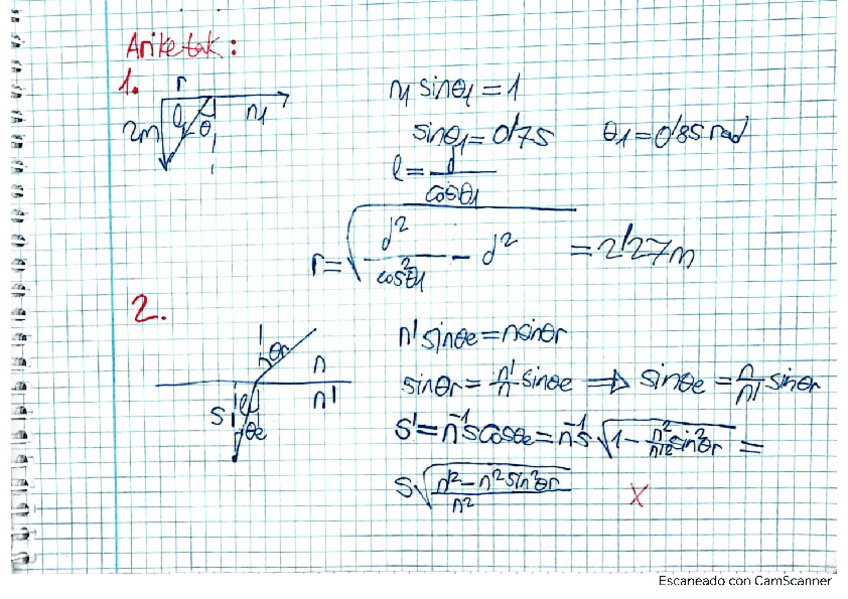 Ariketak:
1.
r
2m l θ n1
n1 sinθ1 = 1
sinθ1 = 0'75 θ1 = 0'85 rad
l = d / cosθ1
r = √(d² / cos²θ1 - d²) = 2'27m
2.
θr
n
n'
S l
θe
n' sinθe = n sinθr
sinθr = n'/n sinθe ⇒ sinθe = n/n' sinθr
s' = n⁻¹ s cosθe = n⁻¹ s √(1 - n²/n'² sin²θr) =
s √((n'² - n² sin²θr) / n²) X
Escaneado con CamScanner